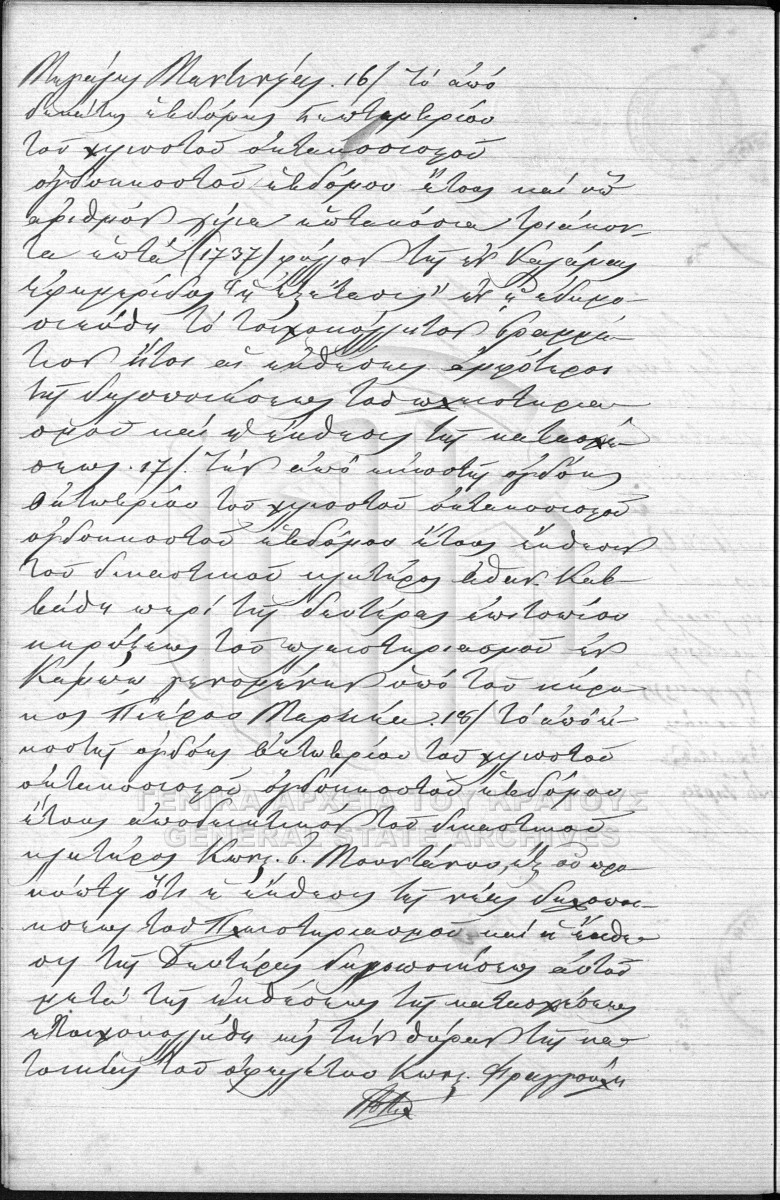 Μεγάλης Μαντινείας. 16/ τὸ ἀπὸ
δεκάτης ἑβδόμης Σεπτεμβρίου
τοῦ χιλιοστοῦ ὀκτακοσιοστοῦ
ὀγδοηκοστοῦ ἑβδόμου ἔτους καὶ ὑπ'
ἀριθμὸν χίλια ἑπτακόσια τριάκον-
τα ἑπτά (1737) φύλλον τῆς ἐν Καλάμαις
ἐφημερίδος "ἡ ἐξέτασις" ἐν ᾗ ἐδημο-
σιεύθη τὸ τοιχοκόλλητον Γραμμά-
τιον ἤτοι αἱ ἐκθέσεις ἀμφότεραι
τῆς δημοσιεύσεως τοῦ πλειστηρια-
σμοῦ καὶ ἡ ἔκθεσις τῆς κατασχέ-
σεως. 17/. τὴν ἀπὸ εἰκοστῆς ὀγδόης
Ὀκτωβρίου τοῦ χιλιοστοῦ ὀκτακοσιοστοῦ
ὀγδοηκοστοῦ ἑβδόμου ἔτους ἔκθεσιν
τοῦ δικαστικοῦ κλητῆρος Ἀθαν. Καβ-
βάθη περὶ τῆς δευτέρας ἐπιτοπίου
κηρύξεως τοῦ πλειστηριασμοῦ ἐν
Κάμπῳ γενομένην ὑπὸ τοῦ κήρυ-
κος Πιέρρου 18/ τὸ ἀπὸ εἰ-
κοστῆς ὀγδόης Ὀκτωβρίου τοῦ χιλιοστοῦ
ὀκτακοσιοστοῦ ὀγδοηκοστοῦ ἑβδόμου
ἔτους ἀποδεικτικὸν τοῦ δικαστικοῦ
κλητῆρος Κων. Γ. Μουντάνου, ἐξ οὗ προ-
κύπτει ὅτι ἡ ἔκθεσις τῆς νέας δημοσι-
εύσεως τοῦ Πλειστηριασμοῦ καὶ ἡ ἔκθε-
σις τῆς Δευτέρας δημοσιεύσεως αὐτοῦ
μετὰ τῆς ἐκθέσεως τῆς κατασχέσεως
ἐτοιχοκολλήθη εἰς τὴν θύραν τῆς κα-
τοικίας τοῦ ὀφειλέτου Κων.
ΓΕΝΙΚΑ ΑΡΧΕΙΑ ΤΟΥ ΚΡΑΤΟΥΣ
GENERAL STATE ARCHIVES